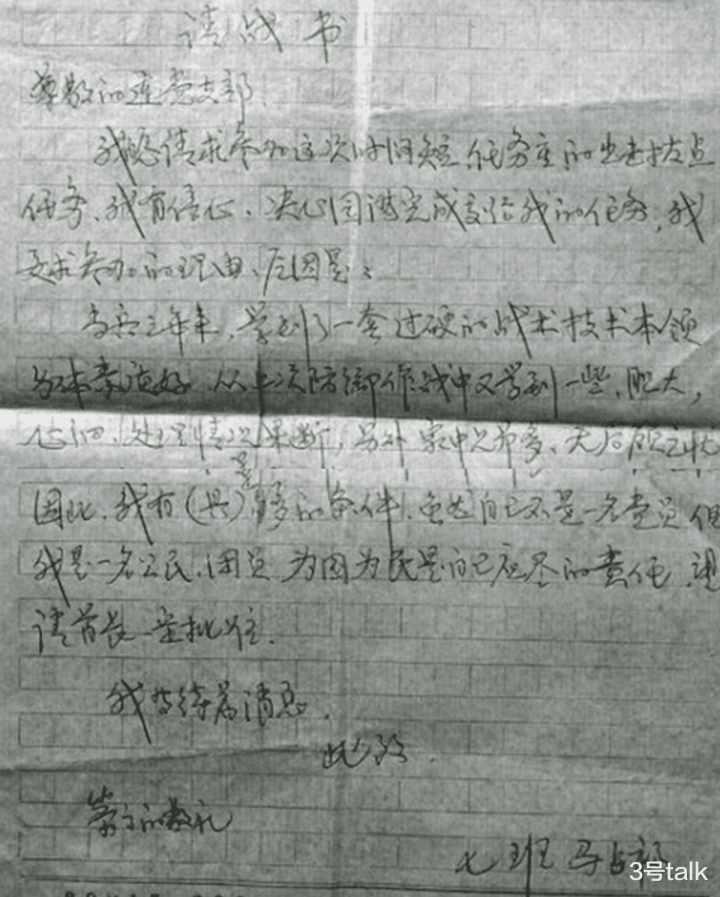 请战书
尊敬的连党支部:
我恳请求参加这次时间短,任务重的出击拔点
任务,我有信心、决心圆满完成交给我的任务,我
要求参加的理由、原因是:
当兵三年来,学到了一套过硬的战术技术本领
身体素质好,从上次防御作战中又学到一些,胆大,
心细,处理情况果断,另外家中兄弟多,无后顾之忧
因此,我有(具)足够的条件,虽然自己不是一名党员,但
我是一名公民、团员,为国为民是自己应尽的责任,望
请首长一定批准.
我等待着消息.
此致
崇高的敬礼
七班 马占
3号talk